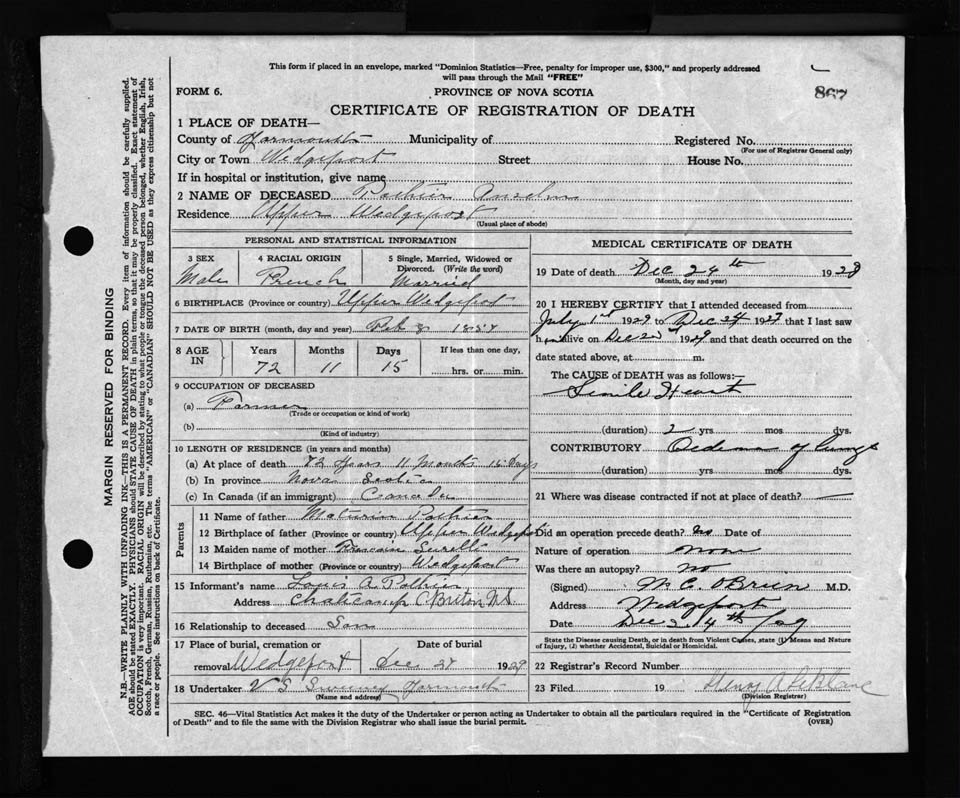 This form if placed in an envelope, marked "Dominion Statistics—Free, penalty for improper use, $300," and properly addressed
will pass through the Mail "FREE"
867
FORM 6. PROVINCE OF NOVA SCOTIA
CERTIFICATE OF REGISTRATION OF DEATH
1 PLACE OF DEATH—
County of Yarmouth Municipality of Registered No.
(For use of Registrar General only)
City or Town Wedgeport Street House No.
If in hospital or institution, give name
2 NAME OF DECEASED Pothier Anselm
Residence Upper Wedgeport
(Usual place of abode)
PERSONAL AND STATISTICAL INFORMATION
3 SEX 4 RACIAL ORIGIN 5 Single, Married, Widowed or
Divorced. (Write the word)
Male French Married
6 BIRTHPLACE (Province or country) Upper Wedgeport
7 DATE OF BIRTH (month, day and year) Feb 8
8 AGE IN Years Months Days If less than one day,
72 11 15 hrs. or min.
9 OCCUPATION OF DECEASED
(a) Farmer
(Trade or occupation or kind of work)
(b)
(Kind of industry)
10 LENGTH OF RESIDENCE (in years and months)
(a) At place of death 72 Years 11 Months 15 Days
(b) In province Nova Scotia
(c) In Canada (if an immigrant) Canada
Parents
11 Name of father Maturin Pothier
12 Birthplace of father (Province or country) Upper Wedgeport
13 Maiden name of mother
14 Birthplace of mother (Province or country) Wedgeport
15 Informant's name Louis A. Pothier
Address Cheticamp C Breton N.S.
16 Relationship to deceased Son
17 Place of burial, cremation or Date of burial
removal Wedgeport Dec 27 1929
18 Undertaker V S Sweeney Yarmouth
(Name and address)
MEDICAL CERTIFICATE OF DEATH
19 Date of death Dec 24th 19
(Month, day and year)
20 I HEREBY CERTIFY that I attended deceased from
July 1st 1929 to Dec 24 19 that I last saw
h alive on Dec 1929 and that death occurred on the
date stated above, at m.
The CAUSE of DEATH was as follows:—
Senile Heart
(duration) 2 yrs mos dys.
CONTRIBUTORY Oedema of lungs
(duration) yrs. mos. dys.
21 Where was disease contracted if not at place of death?
Did an operation precede death? No Date of
Nature of operation None
Was there an autopsy? No
(Signed) M.C. O'Brien M.D.
Address Wedgeport
Date Dec 24th /29
State the Disease causing Death, or in death from Violent Causes, state (1) Means and Nature
of Injury, (2) whether Accidental, Suicidal or Homicidal.
22 Registrar's Record Number
23 Filed 19 Henry A LeBlanc
(Division Registrar)
SEC. 46—Vital Statistics Act makes it the duty of the Undertaker or person acting as Undertaker to obtain all the particulars required in the "Certificate of Registration
of Death" and to file the same with the Division Registrar who shall issue the burial permit. (OVER)
MARGIN RESERVED FOR BINDING
N.B.—WRITE PLAINLY WITH UNFADING INK—THIS IS A PERMANENT RECORD. Every item of information should be carefully supplied.
AGE should be stated EXACTLY. PHYSICIANS should STATE CAUSE OF DEATH in plain terms, so that it may be properly classified. Exact statement of
OCCUPATION is very important. RACIAL ORIGIN will be described by stating to what people or tongue the deceased person belonged, whether English, Irish,
Scotch, French, German, Russian, Ruthenian, etc. The terms "AMERICAN" or "CANADIAN" SHOULD NOT BE USED as they express citizenship but not
a race or people. See instructions on back of Certificate.